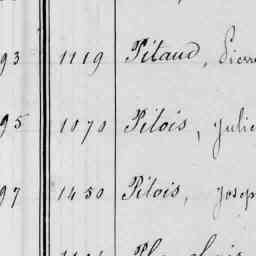 93 1119 Pitaud, Pierre
95 1070 Pitois, Julie
97 1450 Pitois, Josep